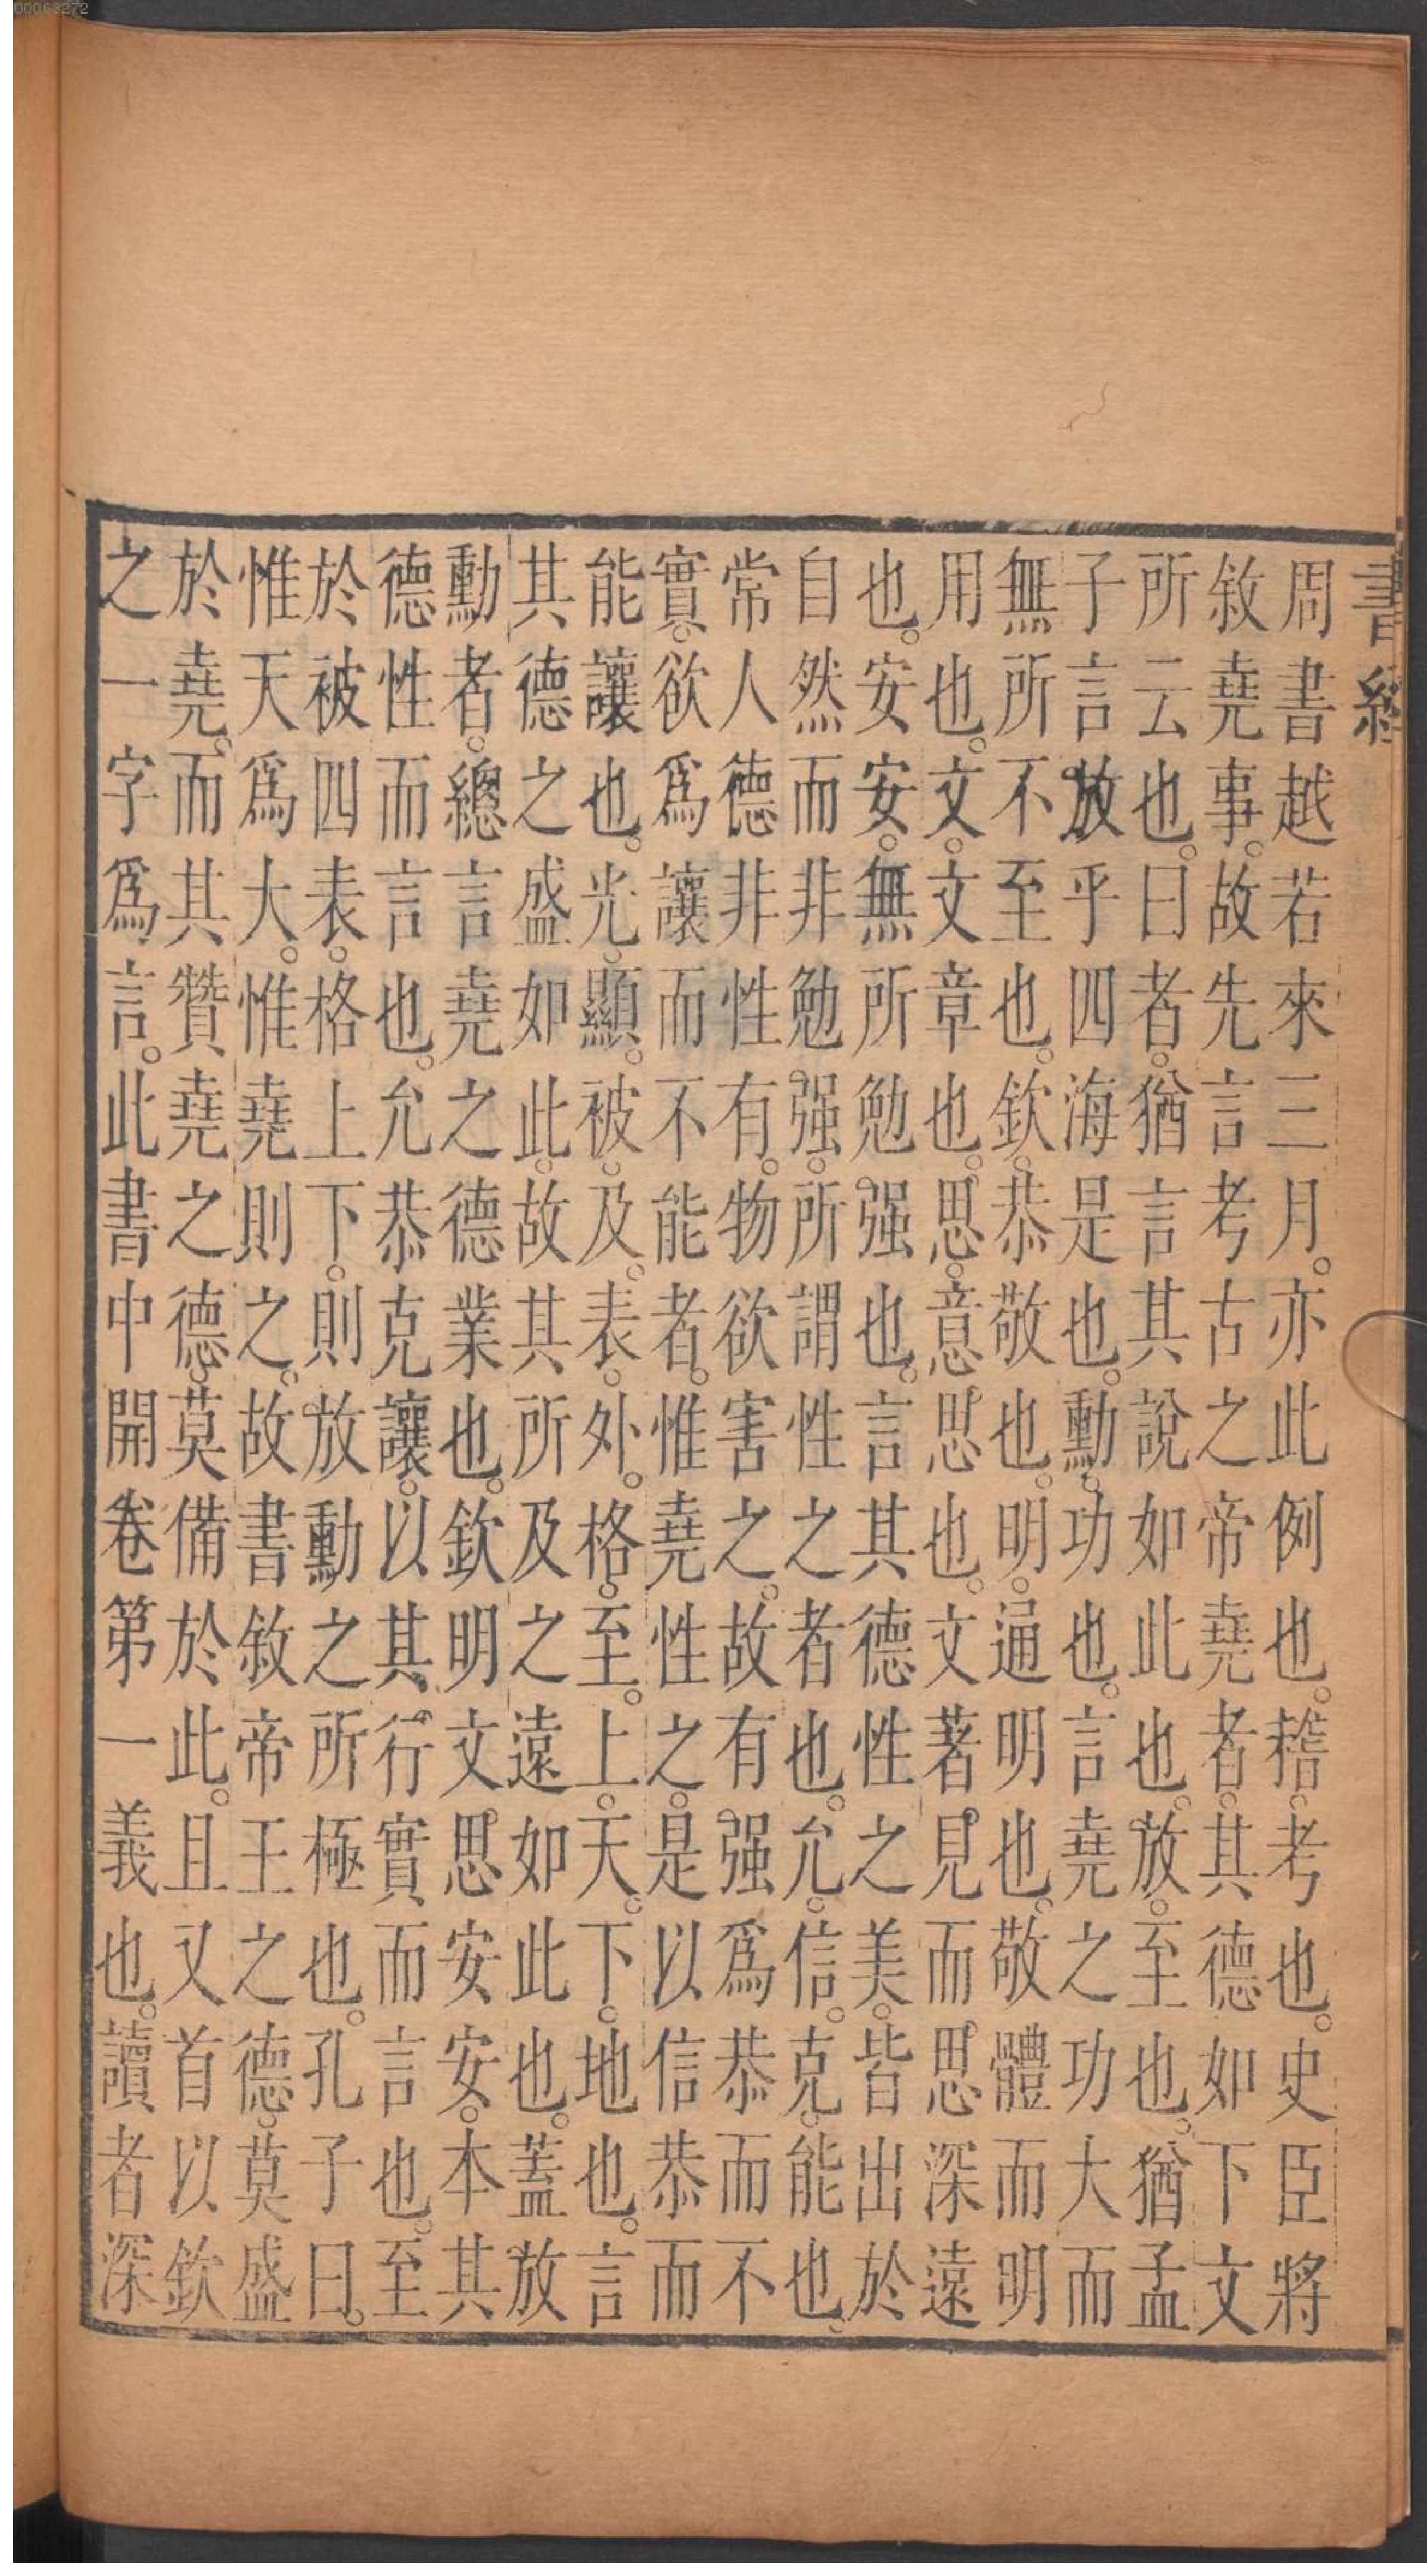 00063272
書經
周書越若來三月。亦此例也。稽。考也。史臣將
敘堯事。故先言考古之帝堯者。其德如下文
所云也。曰者。猶言其說如此也。放。至也。猶孟
子言放乎四海是也。勳。功也。言堯之功大而
無所不至也。欽。恭敬也。明。通明也。敬體而明
用也。文。文章也。思。意思也。文著見而思深遠
也。安安。無所勉强也。言其德性之美。皆出於
自然而非勉强。所謂性之者也。允。信。克。能也。
常人德非性有。物欲害之。故有强爲恭而不
實。欲爲讓而不能者。惟堯性之。是以信恭而
能讓也。光。顯。被。及。表。外。格。至。上。天。下。地也。言
其德之盛如此。故其所及之遠如此也。蓋放
勳者。總言堯之德業也。欽明文思安安。本其
德性而言也。允恭克讓。以其行實而言也。至
於被四表。格上下。則放勳之所極也。孔子曰。
惟天爲大。惟堯則之。故書敘帝王之德。莫盛
於堯。而其贊堯之德。莫備於此。且又首以欽
之一字爲言。此書中開卷第一義也。讀者深